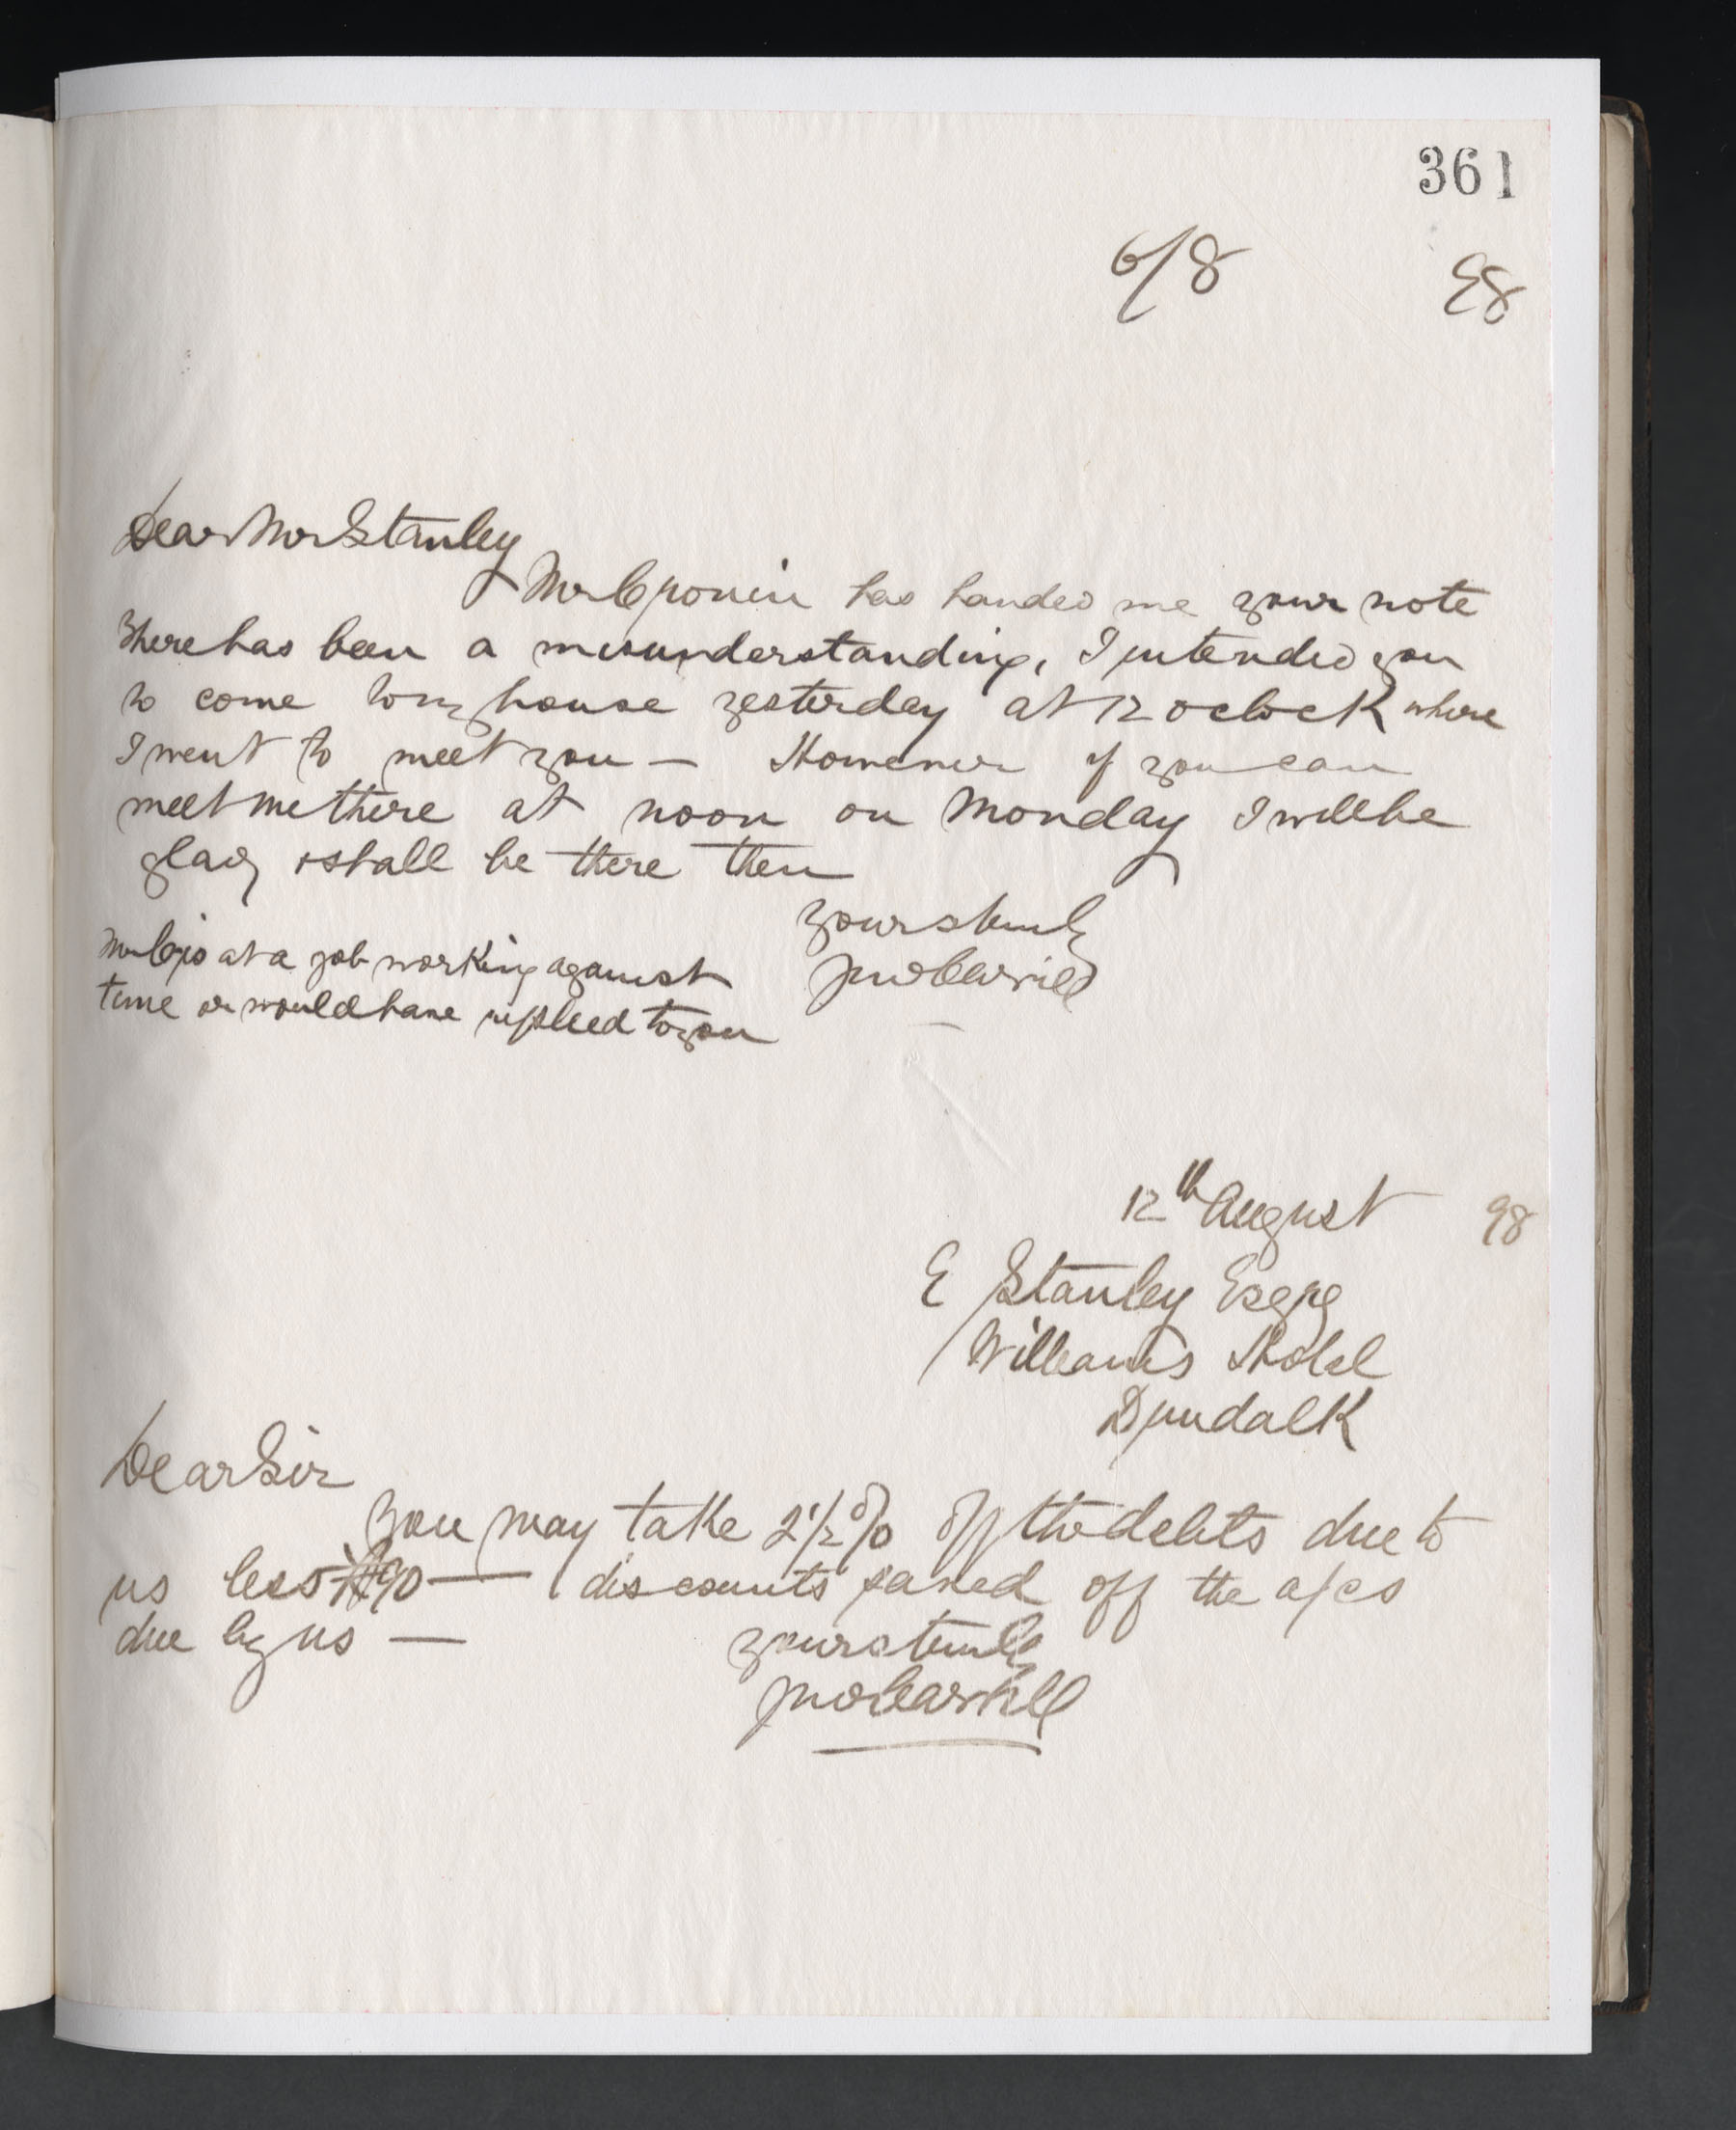 361
6/8 98
Dear Mr Stanley
Mr Cronin has handed me your note
There has been a misunderstanding, I intended you
to come to my house yesterday at 12 oclock where
I went to meet you — However if you can
meet me there at noon on Monday I will be
glad & shall be there then
yours truly
Jno Carvill
Mr C is at a job working against
time or would have replied to you
12th August 98
E Stanley Esqre
Williams Hotel
Dundalk
Dear Sir
You may take 2½% off the debts due to
us less — discounts saved off the a/cs
due by us —
yours truly
Jno Carvill